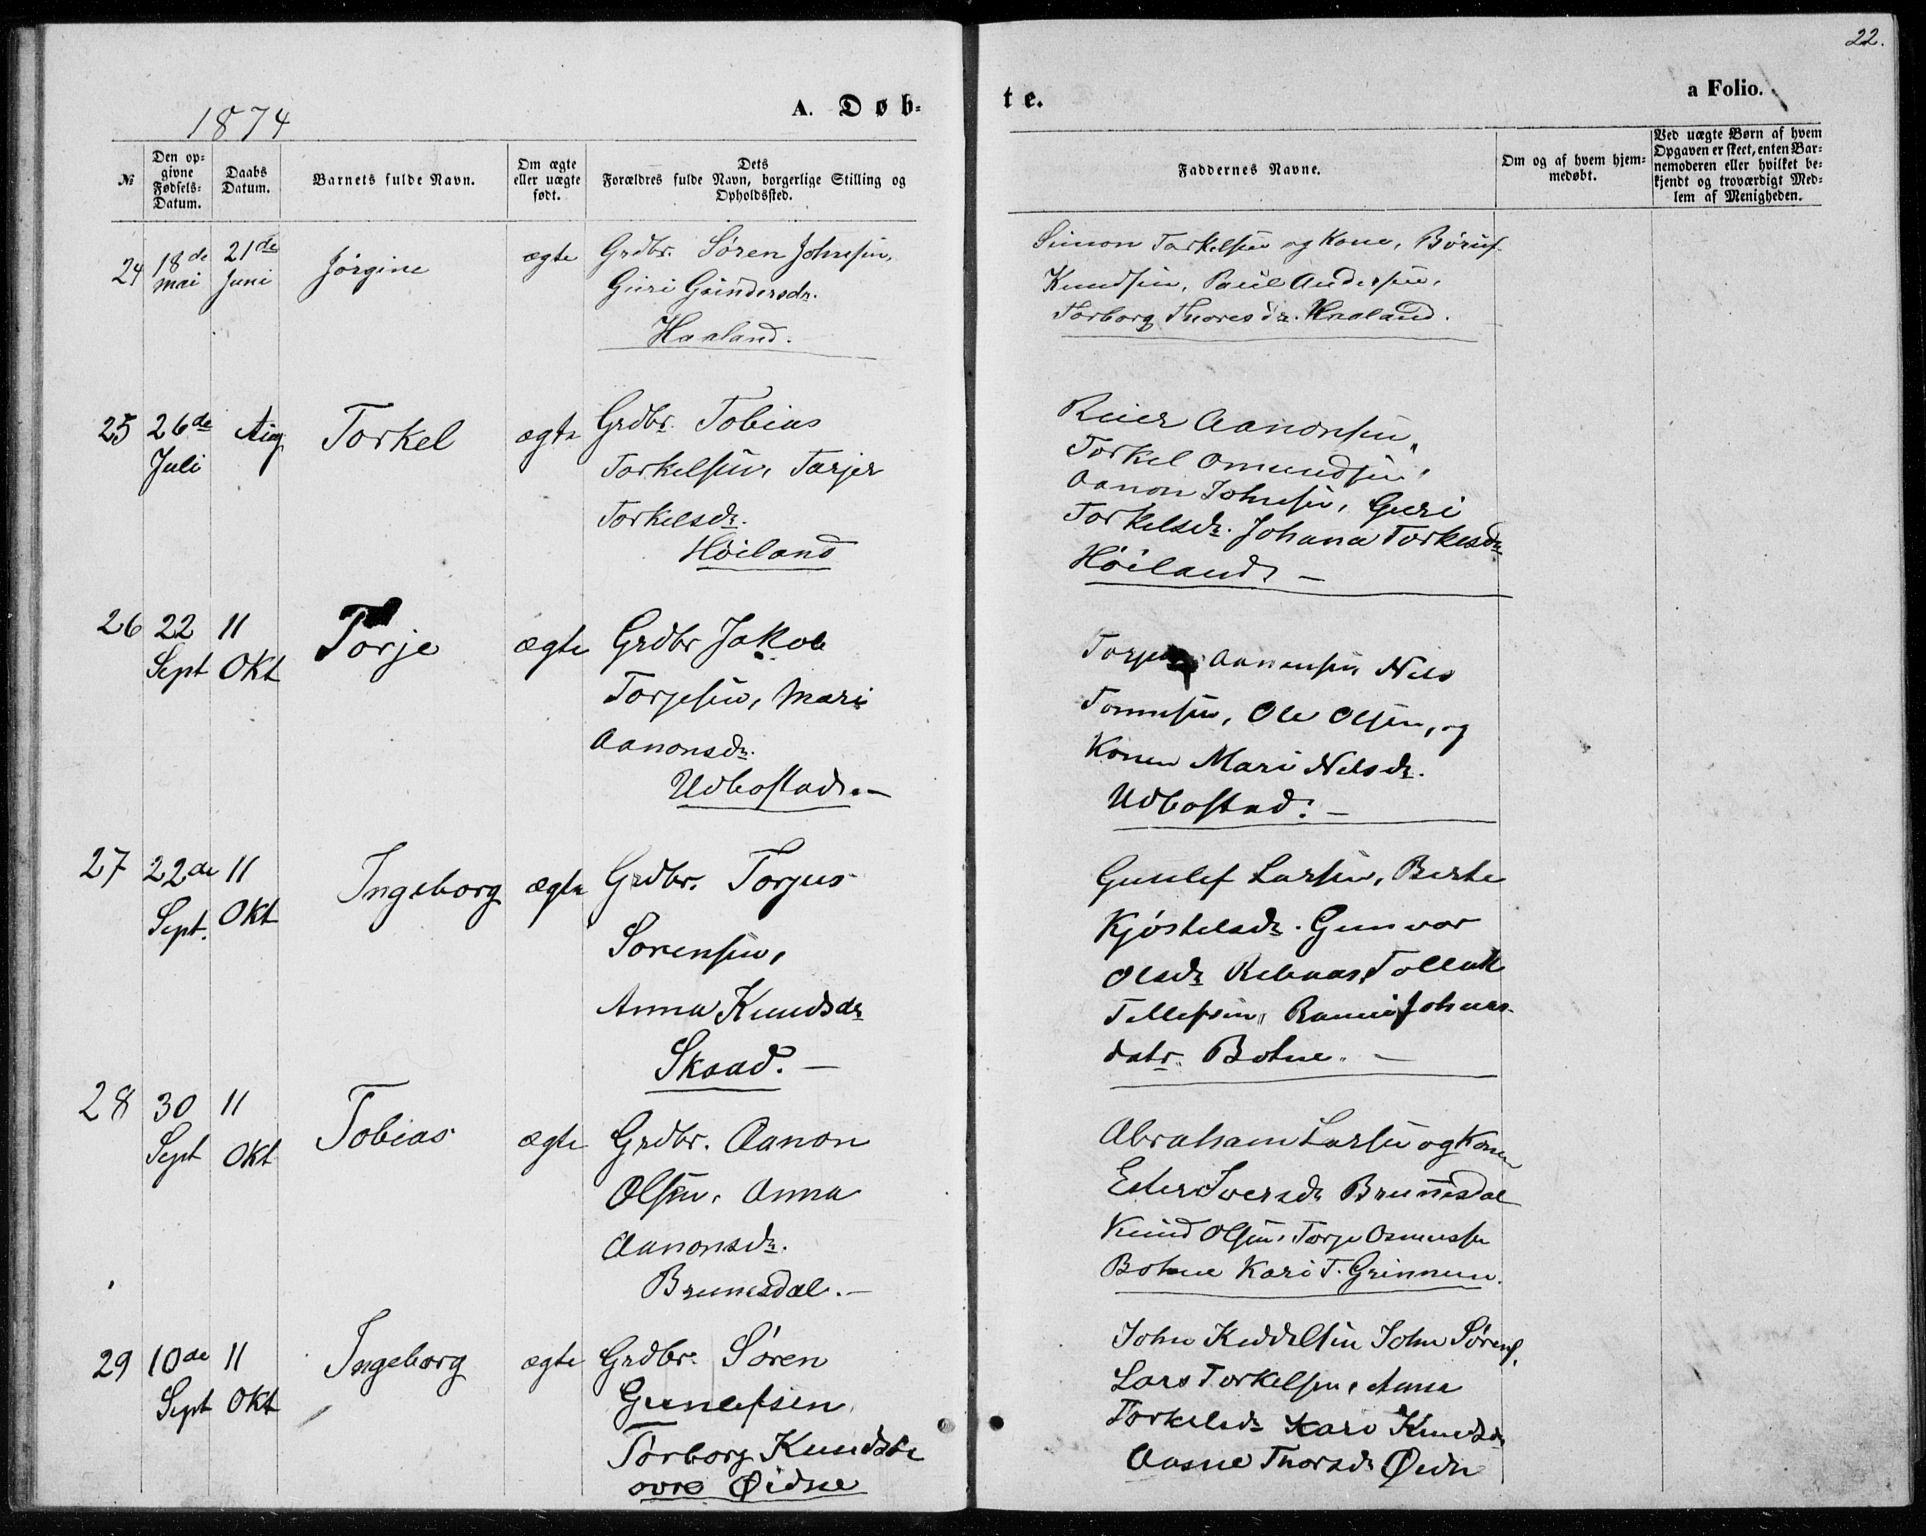 22.
1874
A. Døb-
te.
a Folio.
№
Den op-
givne
Fødsels-
Datum.
Daabs
Datum.
Barnets fulde Navn.
Om ægte
eller uægte
født.
Dets
Forældres fulde Navn, borgerlige Stilling og
Opholdssted.
Faddernes Navne.
Om og af hvem hjem-
medøbt.
Ved uægte Børn af hvem
Opgaven er skeet, enten Bar-
nemoderen eller hvilket be-
kjendt og troværdigt Med-
lem af Menigheden.
24 18de mai 21de Juni Jørgine ægte Grdbr. Søren Johnsen,
Guri Gundersdr.
Haaland.
Simon Torkelsen og Kone,
Knudsen, Paul Andersen,
Torborg Thoresdr. Haaland.
25 26de Juli Aug Torkel ægte Grdbr. Tobias
Torkelsen, Tarjer
Torkelsdr.
Høiland
Reier Aanonsen,
Torkel Omundsen,
Aanon Johnsen, Guri
Torkelsdr. Johana Torkesdr
Høiland. —
26 22 Sept 11 Okt Torje ægte Grdbr Jakob
Torjesen, Mari
Aanonsdr.
Udbostad. —
Aanensen Nils
Tommesen, Ole Olsen, og
Konen Mari Nelsdr.
Udbostad. —
27 22de Sept. 11 Okt Ingeborg ægte Grdbr. Torjus
Sørensen,
Anna Knudsdr
Skaad. —
Gunlef Larsen, Berte
Kjøstelsdr. Gunvor
Olsdr Tollak
Tellefsen, Johns-
datr. Bohne. —
28 30 Sept 11 Okt Tobias ægte Grdbr. Aanon
Olsen, Anna
Aanonsdr.
Brunesdal. —
Abraham Larsen og Konen
Ester Iversdr Brunesdal
Knud Olsen, Torje Osmunsen
Bohne Kari T. Grinnem.
29 10de Sept 11 Okt Ingeborg ægte Grdbr. Søren
Gunlefsen,
Torborg Knudsdr
øvre Øidne
John Keddelsen John Sørens.
Lars Torkelsen, Anna
Torkelsdr Kari Knudsdr
Aasne Thorsdr Øidn